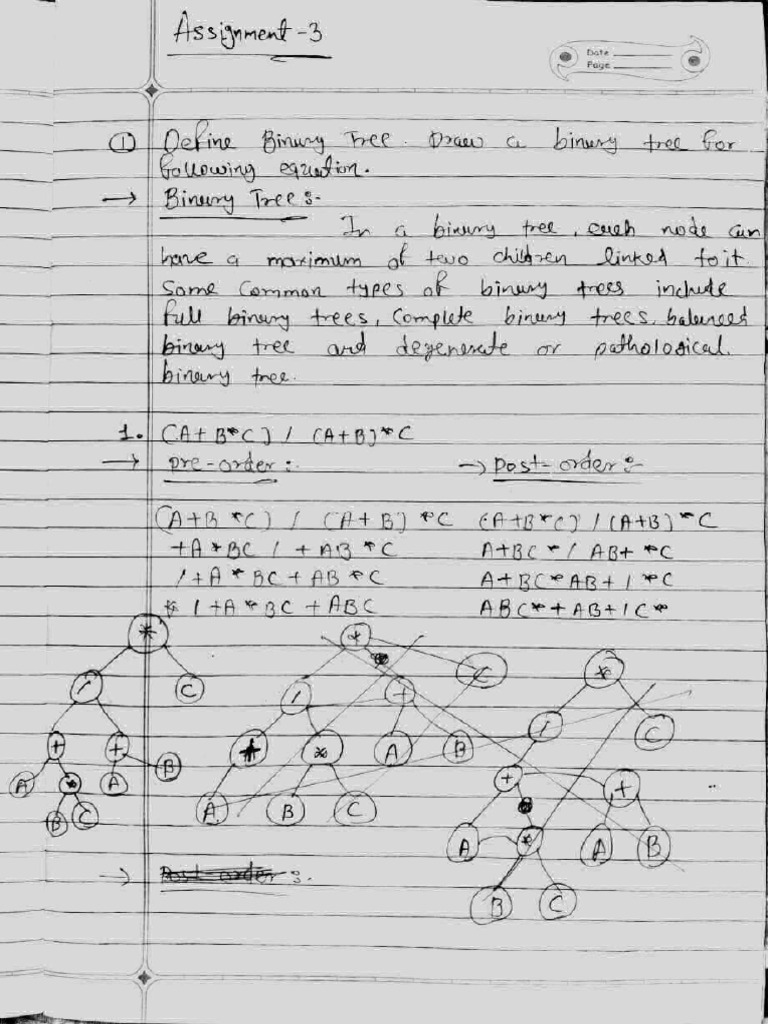 Assignment-3
Date
Page
① Define Binary Tree. Draw a binary tree for
following equation.
→ Binary Tree:-
In a binary tree, each node can
have a maximum of two children linked to it.
Some common types of binary trees include
full binary trees, complete binary trees, balanced
binary tree and degenerate or pathological
binary tree.
1. (A+B*C) / (A+B)*C
→ pre-order:- → post-order:-
(A+B*C) / (A+B)*C (A+B*C) / (A+B)*C
+A*BC / +AB*C A+BC*/AB+*C
/+A*BC+AB*C A+BC*AB+/*C
*/+A*BC+ABC ABC*+AB+/C*
* * *
/ C / + C / C
+ + + * A B + +
A * A B A B C A * A B
B C B C
→ Post-order:-